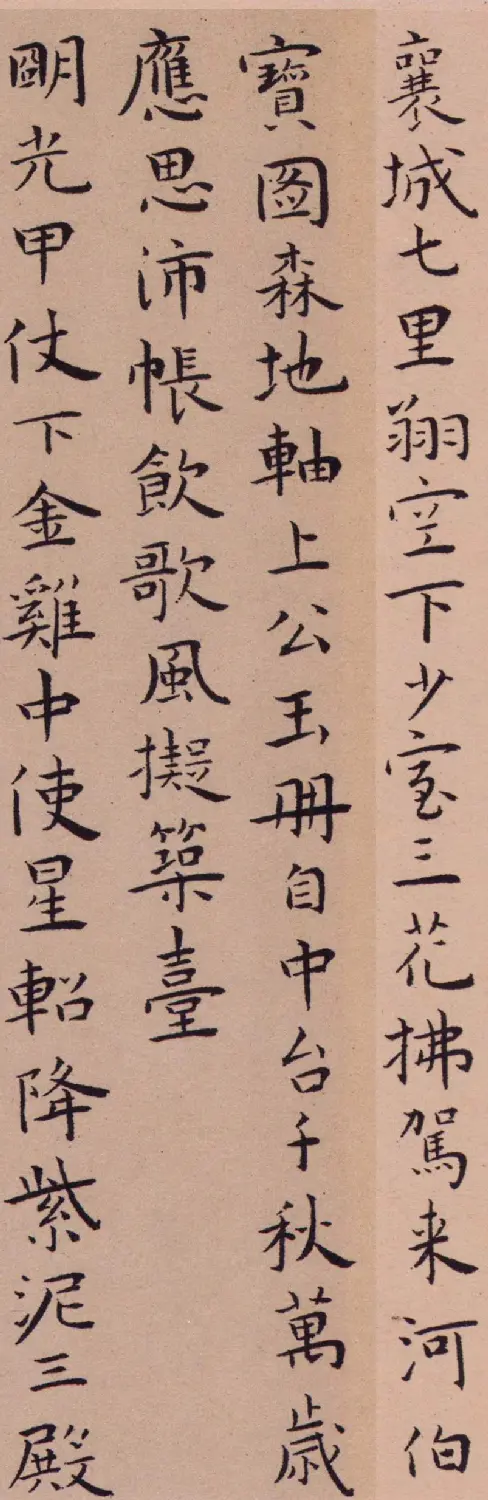 襄城七里翔空下少室三花拂駕来河伯
寶圖森地軸上公玉冊自中台千秋萬歲
應思沛帳飲歌風擬築臺
朙光甲仗下金雞中使星軺降紫泥三殿